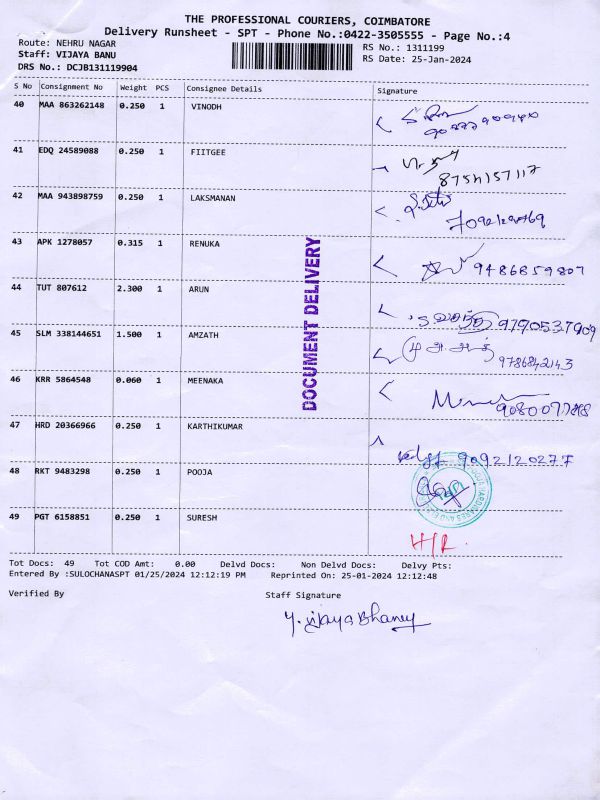 THE PROFESSIONAL COURIERS, COIMBATORE
Delivery Runsheet - SPT - Phone No.:0422-3505555 - Page No.:4
Route: NEHRU NAGAR
Staff: VIJAYA BANU
DRS No.: DCJB131119904
RS No.: 1311199
RS Date: 25-Jan-2024
S No Consignment No Weight PCS Consignee Details Signature
40 MAA 863262148 0.250 1 VINODH
41 EDQ 24589088 0.250 1 FIITGEE
8754157117
42 MAA 943898759 0.250 1 LAKSMANAN
43 APK 1278057 0.315 1 RENUKA
9486859807
44 TUT 807612 2.300 1 ARUN
9790537909
45 SLM 338144651 1.500 1 AMZATH
9786842143
46 KRR 5864548 0.060 1 MEENAKA
47 HRD 20366966 0.250 1 KARTHIKUMAR
9092120277
48 RKT 9483298 0.250 1 POOJA
49 PGT 6158851 0.250 1 SURESH
H/R.
DOCUMENT DELIVERY
Tot Docs: 49 Tot COD Amt: 0.00 Delvd Docs: Non Delvd Docs: Delvy Pts:
Entered By :SULOCHANASPT 01/25/2024 12:12:19 PM Reprinted On: 25-01-2024 12:12:48
Verified By Staff Signature
Y. Vijaya Bhaney